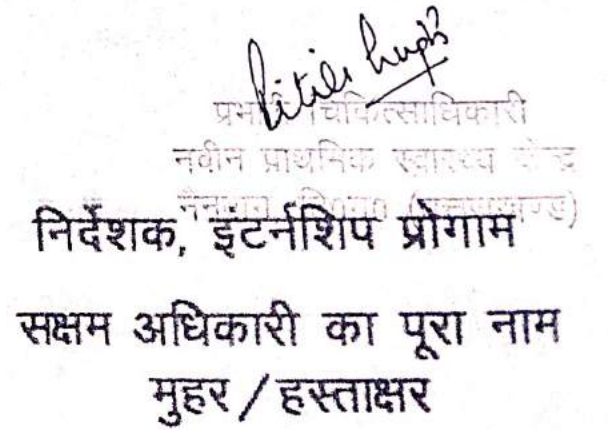 प्रभारी चिकित्साधिकारी
नवीन प्राथमिक स्वास्थ्य केन्द्र
निर्देशक, इंटर्नशिप प्रोगाम
सक्षम अधिकारी का पूरा नाम
मुहर/हस्ताक्षर